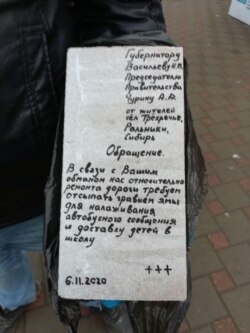 Губернатору
Васильеву И.В.
Председателю
Правительства
Чурину А.А.
от жителей
сёл Трехречье,
Ральники,
Сибирь
Обращение.
В связи с Вашим
обманом нас относительно
ремонта дороги требуем
отсыпать гравием ямы
для налаживания
автобусного сообщения
и доставку детей в
школу
+++
6.11.2020